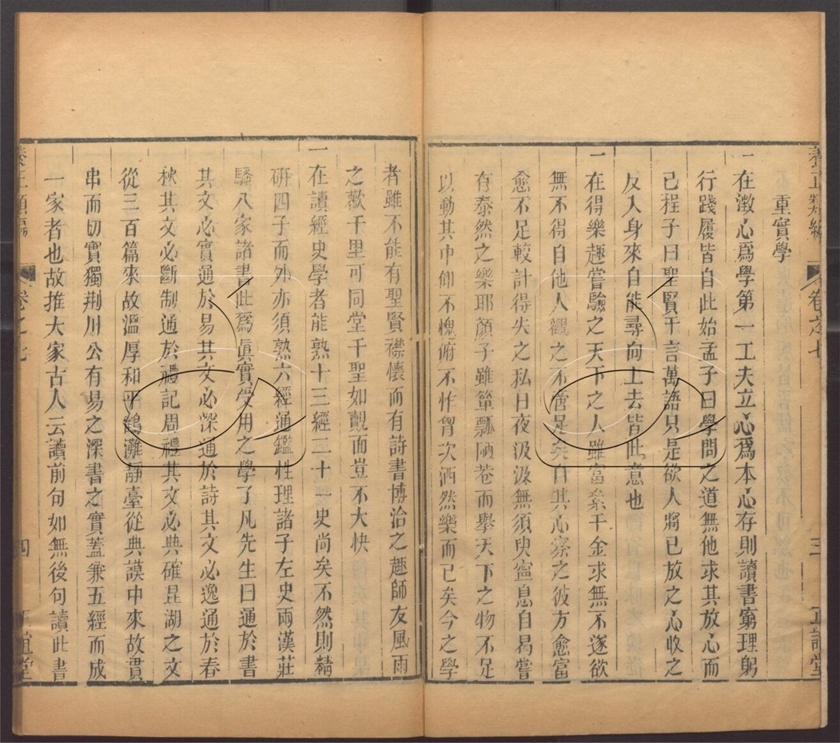 養正類編 卷之七 三 正誼堂
重實學
一在澂心爲學第一工夫立心爲本心存則讀書窮理躬
行踐履皆自此始孟子曰學問之道無他求其放心而
已程子曰聖賢千言萬語只是欲人將已放之心收之
反入身來自能尋向上去皆此意也
一在得樂趣嘗驗之天下之人雖富絫千金求無不遂欲
無不得自他人觀之不啻足矣自其心察之彼方愈富
愈不足較計得失之私日夜汲汲無須臾寍息自曷嘗
有泰然之樂耶顔子雖簞瓢陋巷而擧天下之物不足
以動其中仰不愧俯不怍胷次洒然樂而已矣今之學
者雖不能有聖賢襟懷而有詩書博洽之趣師友風雨
之歡千里可同堂千聖如覿面豈不大快
一在讀經史學者能熟十三經二十一史尚矣不然則精
硏四子而外亦須熟六經通鑑性理諸子左史兩漢莊
騷八家諸書此爲眞實受用之學了凡先生曰通於書
其文必實通於易其文必深通於詩其文必逸通於春
秋其文必斷制通於禮記周禮其文必典確昆湖之文
從三百篇來故溫厚和平鶴灘靜臺從典謨中來故貫
串而切實獨荆川公有易之深書之實蓋兼五經而成
一家者也故推大家古人云讀前句如無後句讀此書
養正類編 卷之七 四 正誼堂